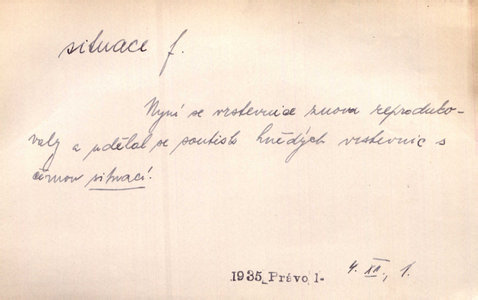 situace f.
Nyní se vrstevnice znova reproduko-
valy a udělal se soutisk hnědých vrstevnic s
černou situací.
1935 Právo 1- 4. XII., 1.